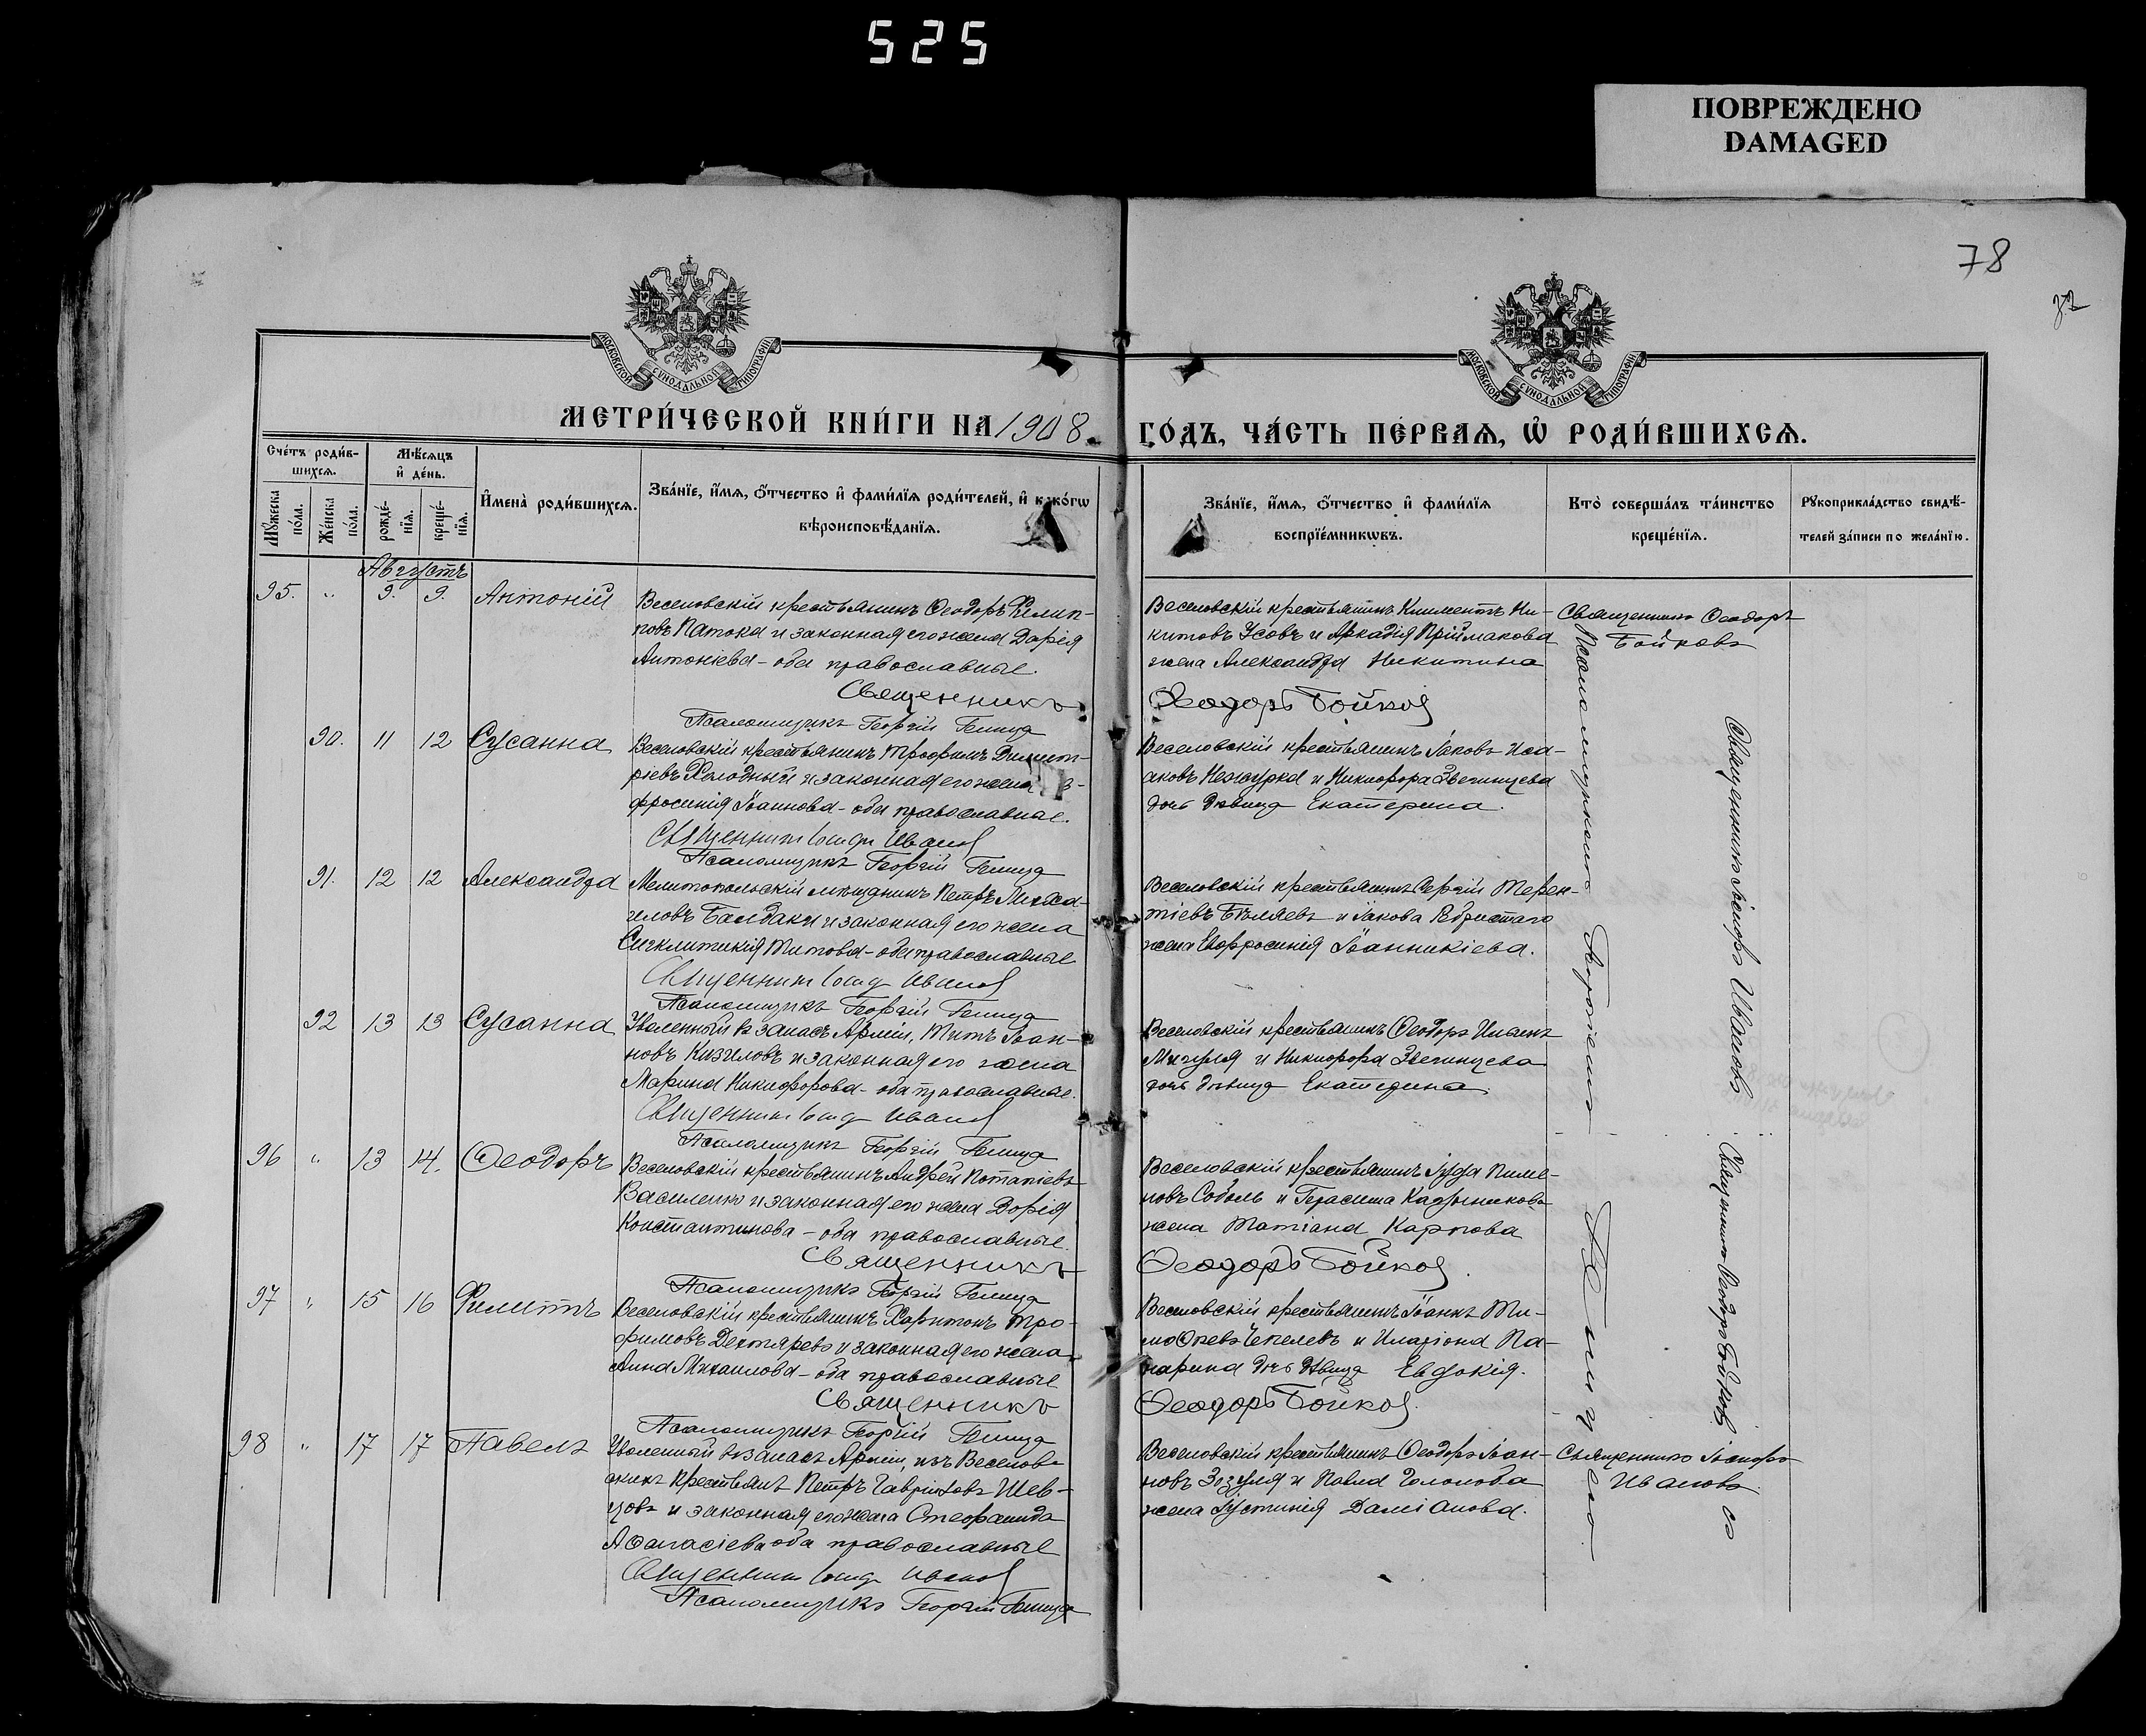 525
ПОВРЕЖДЕНО
DAMAGED
78
МОСКОВСКОЙ СѴНОДАЛЬНОЙ ТИПОГРАФІИ
МОСКОВСКОЙ СѴНОДАЛЬНОЙ ТИПОГРАФІИ
МЕТРИ́ЧЕСКОЙ КНИ́ГИ НА 1908
ГО́ДЪ, ЧА́СТЬ ПЕ́РВАЯ, Ѡ҆ РОДИ́ВШИХСЯ.
Сче́тъ роди́в-
шихся.
Мꙋжеска по́ла.
Же́нска по́ла.
Мѣ́сяцъ
и҆ де́нь.
рожде́-
нїя.
креще́-
нїя.
И҆мена̀ роди́вшихся.
Зва́нїе, и҆́мя, ѻ҆́тчество и҆ фами́лїя роди́телей, и҆ како́гѡ
вѣроисповѣ́данїя.
Зва́нїе, и҆́мя, ѻ҆́тчество и҆ фами́лїя
воспрїе́мникѡвъ.
Кто̀ соверша́лъ та́инство
креще́нїя.
Рꙋкоприкла́дство свидѣ́-
телей за́писи по жела́нїю.
Августъ
95. " 9. 9. Антоній
Веселовскій крестьянинъ Ѳеодоръ Филип-
повъ Патока и законная его жена Дарія
Антоніева - оба православные.
Священникъ
Псаломщикъ Георгій
Веселовскій крестьянинъ Климентъ Ни-
китовъ Усовъ и Аркадія Пріймакова
жена Александра Никитина
Ѳеодоръ Бойковъ
Священникъ Ѳеодоръ
Бойковъ
90. 11 12 Сусанна
Веселовскій крестьянинъ Трофимъ Димит-
ріевъ Холодный и законная его жена
фросинія Іоаннова - оба православные.
Священникъ Іосифъ Ивановъ
Псаломщикъ Георгій
Веселовскій крестьянинъ Іаковъ Иса-
аковъ и Никифора Звегинцева
дочь девица Екатерина.
91. 12 12 Александра
Мелитопольскій мещанинъ Петръ Миха-
иловъ Балдаки и законная его жена
Синклитикія Титова - оба православные
Священникъ Іосифъ Ивановъ
Псаломщикъ Георгій
Веселовскій крестьянинъ Сергій Терен-
тіевъ Бѣляевъ и Іакова
жена Евфросинія Іоанникіева.
92 13 13 Сусанна
Уволенный въ запасъ Арміи, Титъ Іоан-
новъ Кизиловъ и законная его жена
Марина Никифорова - оба православные.
Священникъ Іосифъ Ивановъ
Псаломщикъ Георгій
Веселовскій крестьянинъ Ѳеодоръ
Мигуля и Никифора Звегинцева
дочь девица Екатерина.
96 " 13 14. Ѳеодоръ
Веселовскій крестьянинъ Андрей Потапіевъ
Василенко и законная его жена Дарія
Константинова - оба православные.
Священникъ
Псаломщикъ Георгій
Веселовскій крестьянинъ Іуда Пиме-
новъ Соболь и Герасима
жена Татіана Карпова
Ѳеодоръ Бойковъ.
97 " 15 16 Филиппъ
Веселовскій крестьянинъ Харитонъ Тро-
фимовъ Дехтяревъ и законная его жена
Анна Михаилова - оба православные
Священникъ
Псаломщикъ Георгій
Веселовскій крестьянинъ Іоаннъ Ти-
моѲеевъ Чепелевъ и Иларіона Па-
нарина дочь девица Евдокія.
Ѳеодоръ Бойковъ.
98 " 17 17 Павелъ
Уволенный въ запасъ Арміи, изъ Веселов-
скихъ крестьянъ Петръ Гавріиловъ Шев-
цовъ и законная его жена Стефанида
АѲанасіева оба православные
Священникъ Іосифъ Ивановъ
Псаломщикъ Георгій
Веселовскій крестьянинъ Ѳеодоръ Іоан-
новъ Зозуля и Павла Гололоба
жена Іустинія Даміанова.
Священникъ Іосифъ
Ивановъ
Псаломщикомъ Георгіемъ
Священникъ Іосифъ Ивановъ
Священникъ Ѳеодоръ Бойковъ